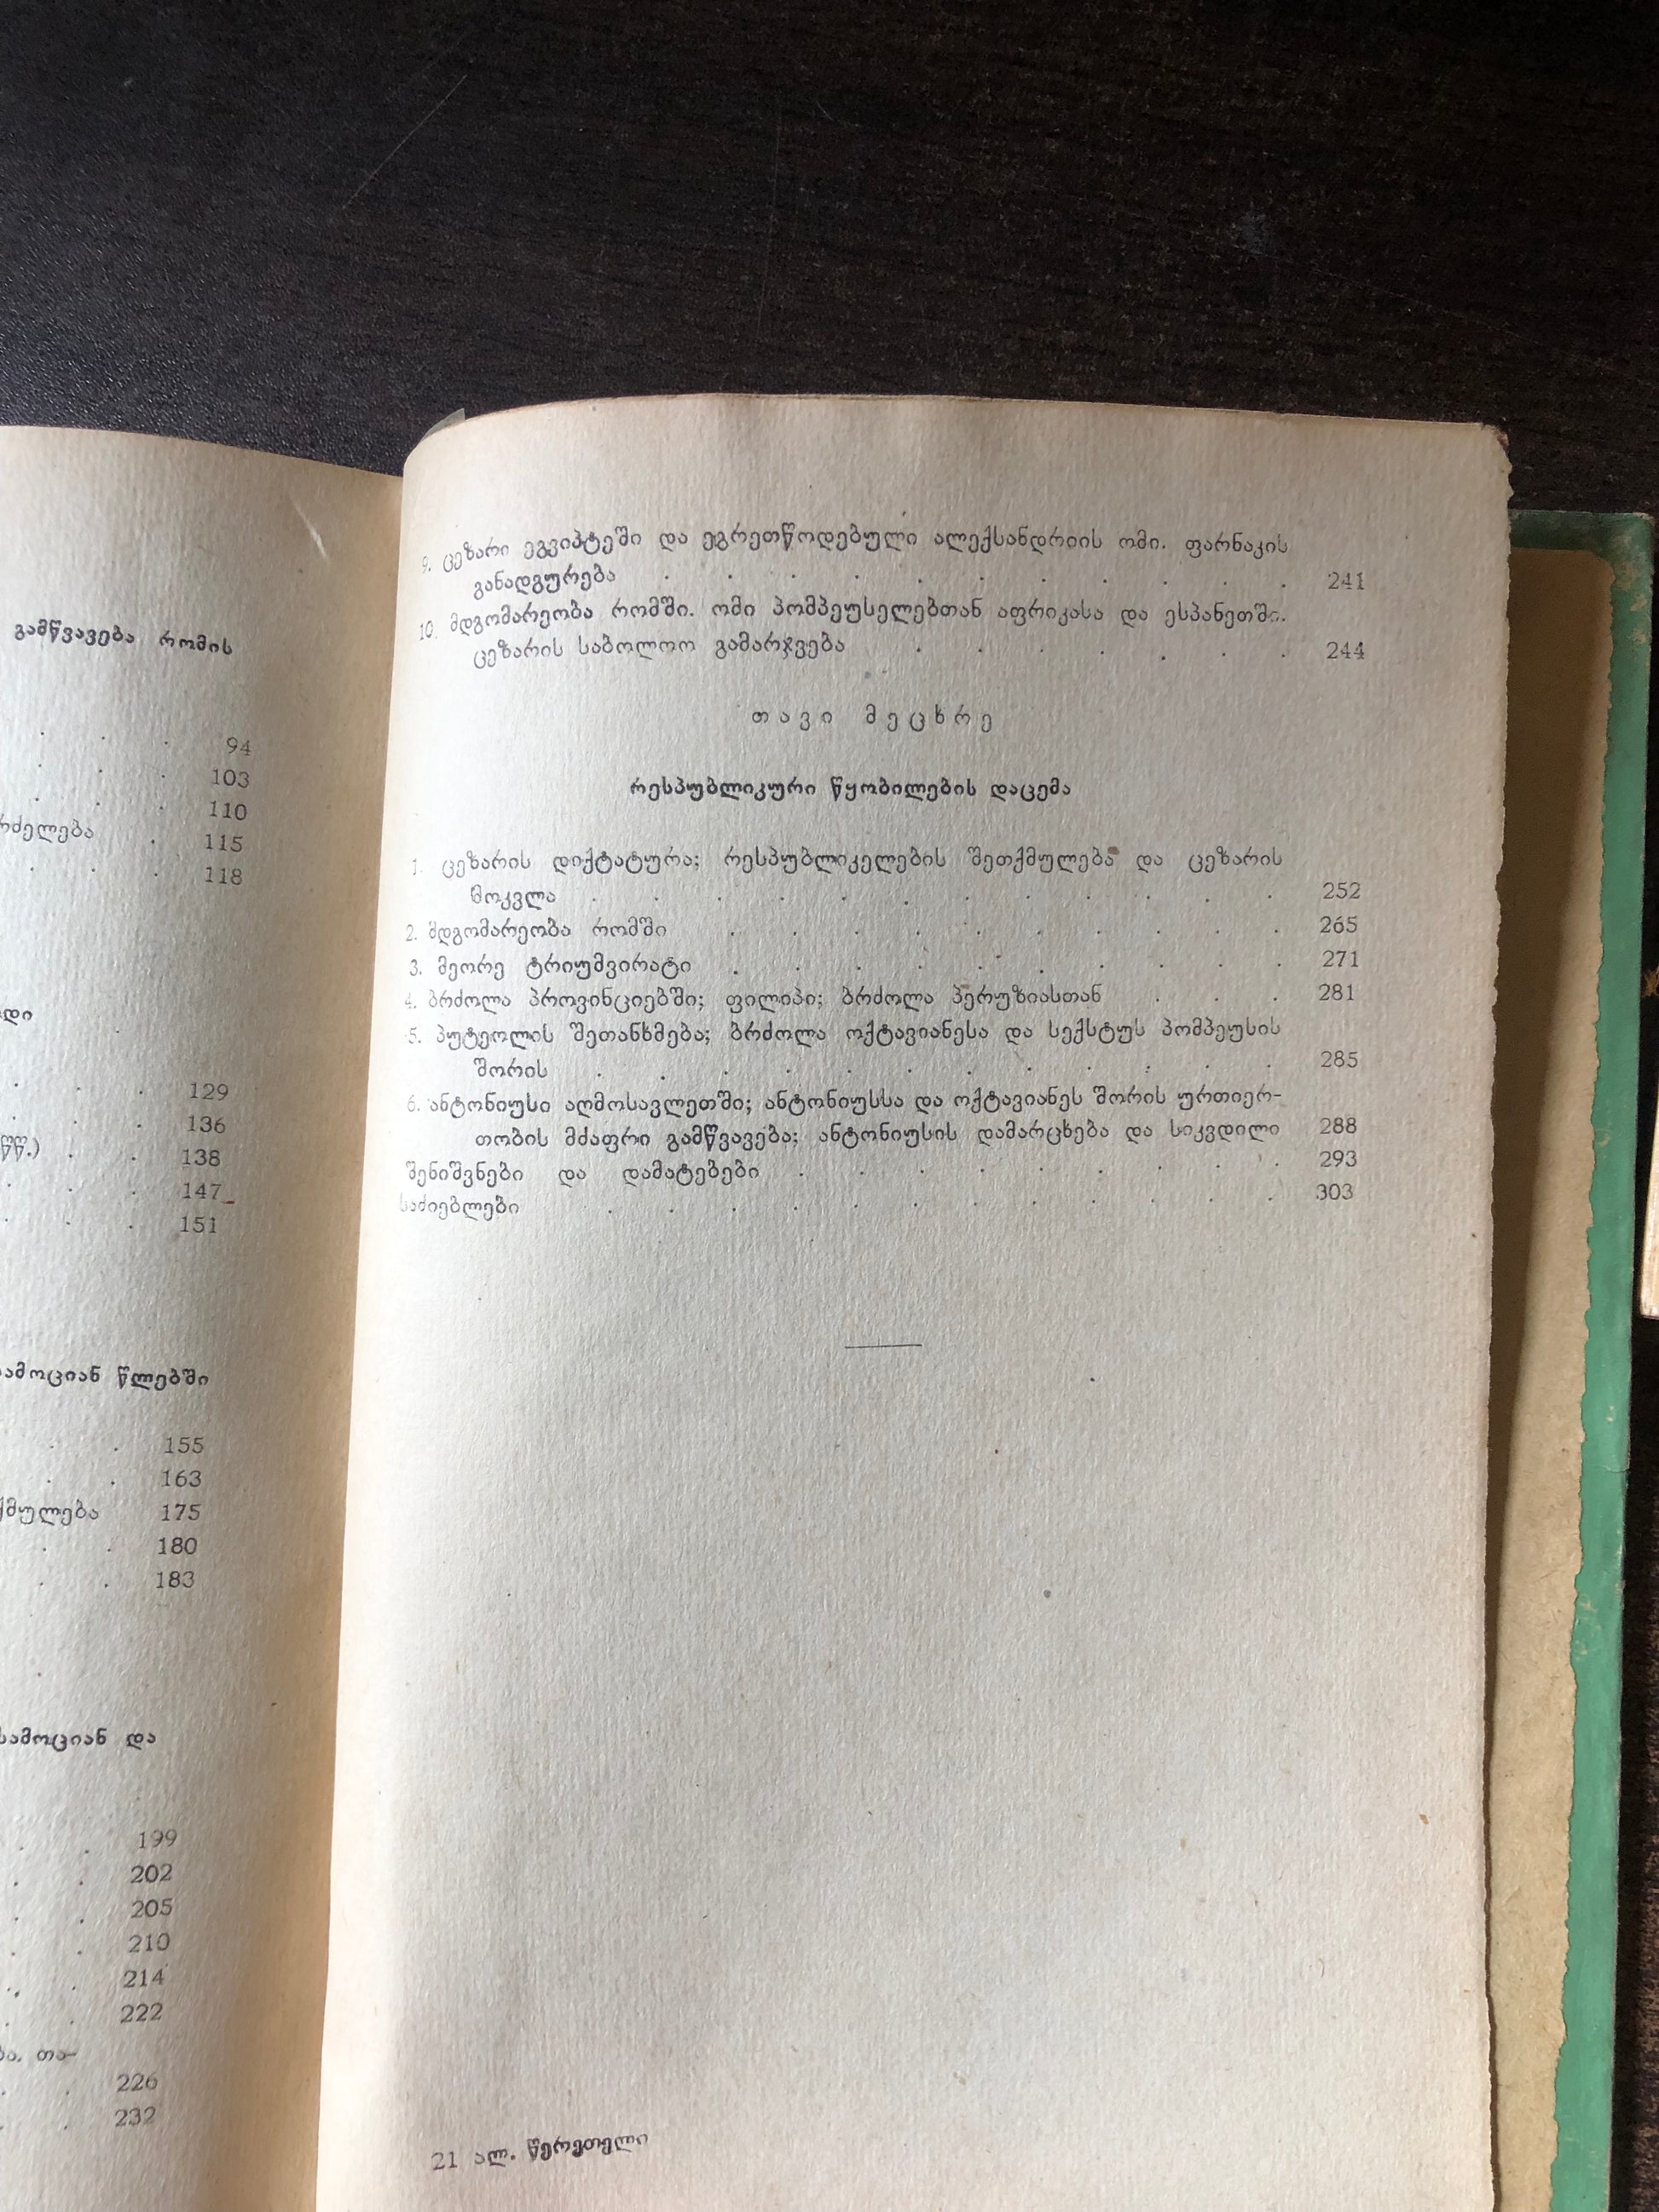 გამწვავება რომის
94
103
110
115
118
129
136
138
147
151
წლებში
155
163
175
180
183
სამოციან და
199
202
205
210
214
222
226
232
9. ცეზარი ეგვიპტეში და ეგრეთწოდებული ალექსანდრიის ომი. ფარნაკის
განადგურება . . . . . . . . . . . 241
10. მდგომარეობა რომში. ომი პომპეუსელებთან აფრიკასა და ესპანეთში.
ცეზარის საბოლოო გამარჯვება . . . . . . . 244
თავი მეცხრე
რესპუბლიკური წყობილების დაცემა
1. ცეზარის დიქტატურა; რესპუბლიკელების შეთქმულება და ცეზარის
მოკვლა . . . . . . . . . . . . 252
2. მდგომარეობა რომში . . . . . . . . . . 265
3. მეორე ტრიუმვირატი . . . . . . . . . . 271
4. ბრძოლა პროვინციებში; ფილიპი; ბრძოლა პერუზიასთან . . . 281
5. პუტეოლის შეთანხმება; ბრძოლა ოქტავიანესა და სექსტუს პომპეუსის
შორის . . . . . . . . . . . . 285
6. ანტონიუსი აღმოსავლეთში; ანტონიუსსა და ოქტავიანეს შორის ურთიერ-
თობის მძაფრი გამწვავება; ანტონიუსის დამარცხება და სიკვდილი 288
შენიშვნები და დამატებები . . . . . . . . . 293
საძიებლები . . . . . . . . . . . . 303
21 ალ. წერეთელი